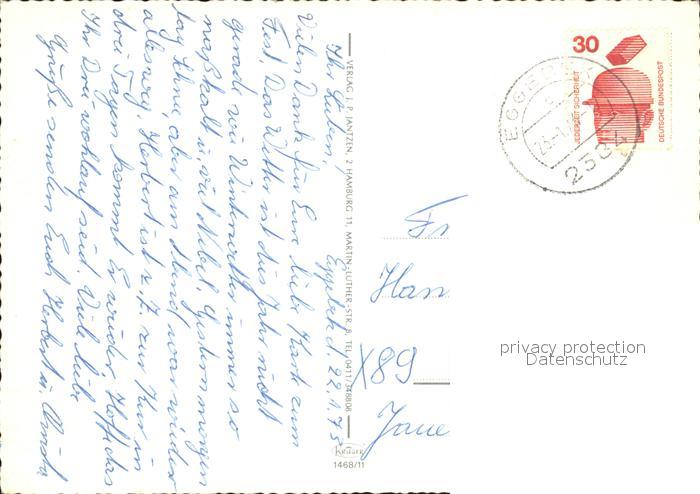 Eggebek d. 22.1.75
Ihr Lieben!
Vielen Dank für Eure liebe Karte zum
Fest. Das Wetter ist dies Jahr nicht
gerade wie Winterwetter immer so
naßkalt u. viel Nebel. Gestern morgen
lag Schnee aber am Abend war wieder
alles weg. Herbert ist z. Z. zur Kur in
drei Tagen kommt Er wieder. Hoffe das
Ihr Drei wohlauf seid. Viele liebe
Grüße senden Euch Herbert u.
VERLAG J. P. JANTZEN, 2 HAMBURG 11, MARTIN-LUTHER-STR. 8, TEL. 0411/348808
Krüger
1468/11
30
JEDERZEIT SICHERHEIT
DEUTSCHE BUNDESPOST
EGGEB
2384
Fr
Han
X89
Jaue
privacy protection
Datenschutz